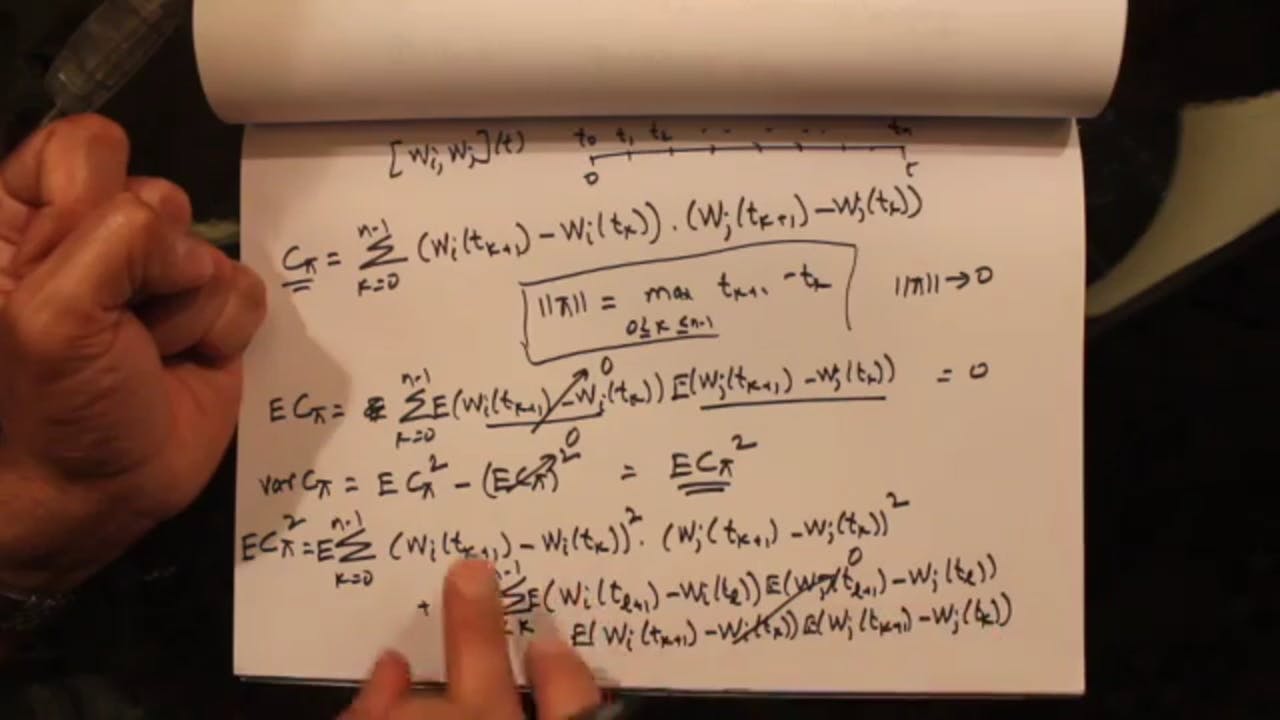 [Wi, Wj](t) t0 t1 t2 . . . . . tn
0 t
Cπ = Σ_{k=0}^{n-1} (Wi(tk+1) - Wi(tk)) . (Wj(tk+1) - Wj(tk))
||π|| = max_{0≤k≤n-1} tk+1 - tk ||π|| → 0
E Cπ = Σ_{k=0}^{n-1} E(Wi(tk+1) - Wi(tk)) E(Wj(tk+1) - Wj(tk)) = 0
0
var Cπ = E Cπ² - (E Cπ)² = E Cπ²
0
E Cπ² = E Σ_{k=0}^{n-1} (Wi(tk+1) - Wi(tk))² . (Wj(tk+1) - Wj(tk))²
+ Σ^{n-1} E(Wi(tl+1) - Wi(tl)) E(Wj(tl+1) - Wj(tl))
0
E(Wi(tk+1) - Wi(tk)) E(Wj(tk+1) - Wj(tk))